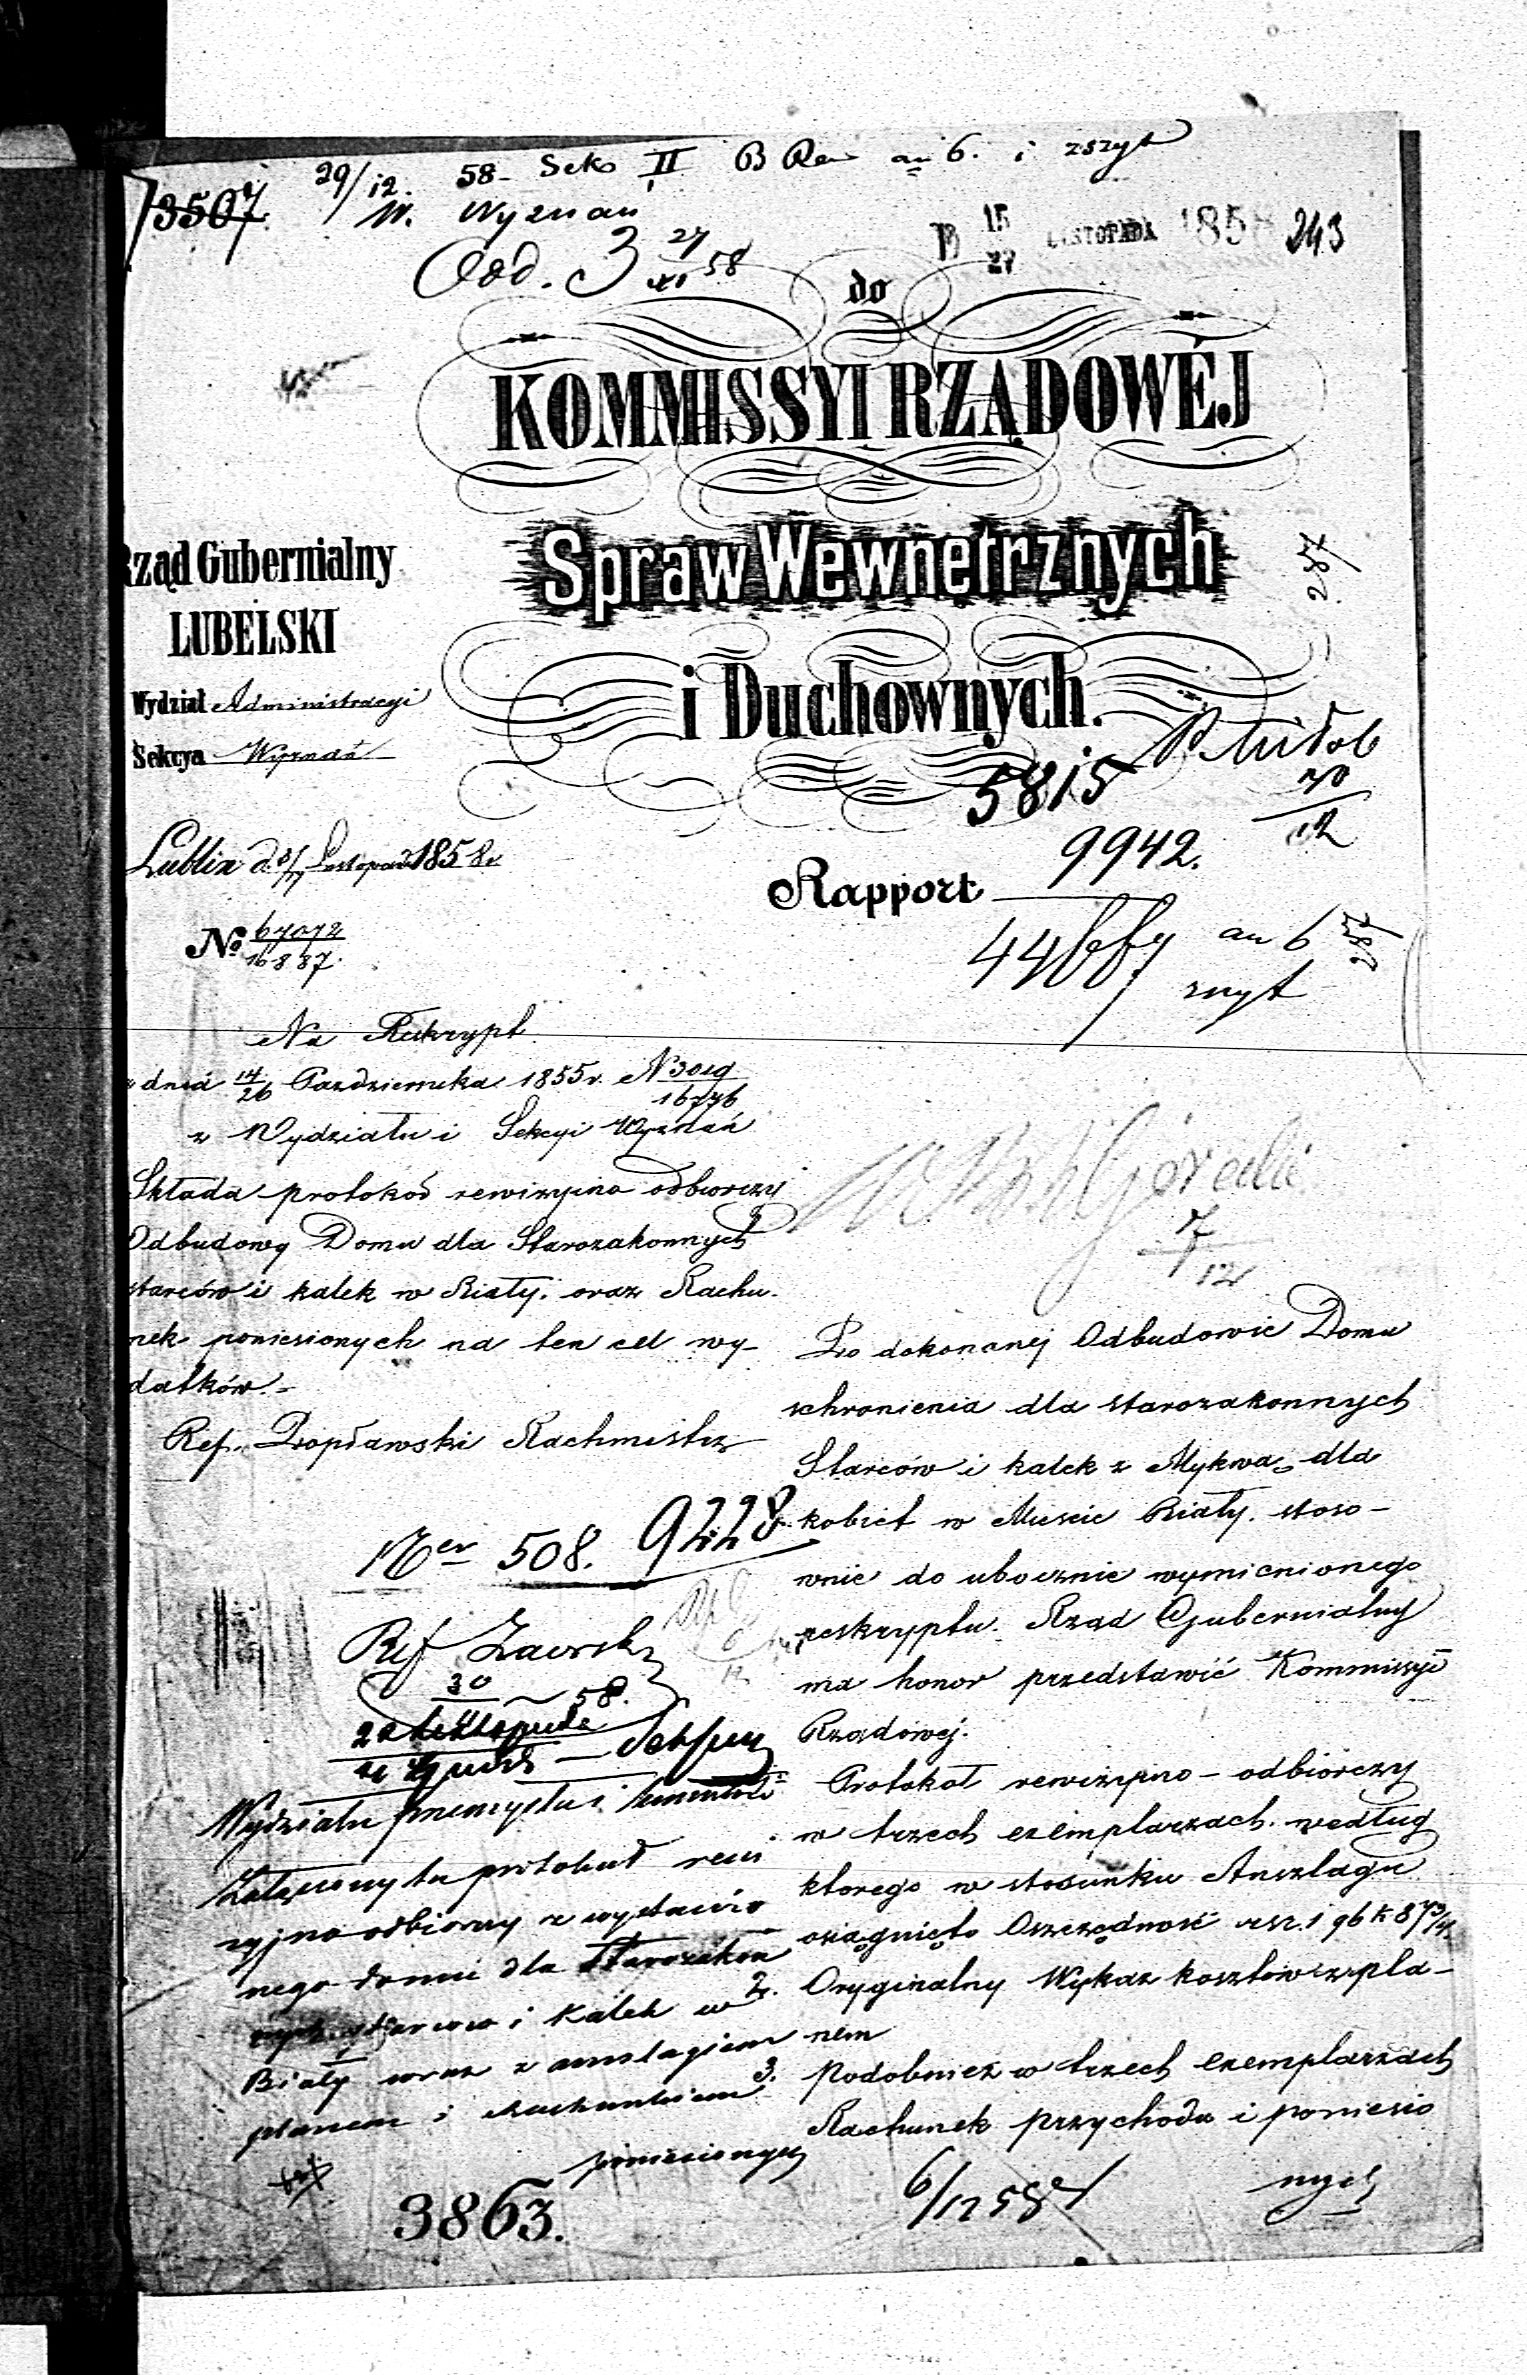 3507
29/12. 58 – Sek II B Rew an 6. i zszyt
W. Wyznań
Odd. 3 27/XI 58
15/27 LISTOPADA 1858 243
do
KOMMISSYI RZĄDOWÉJ
Spraw Wewnetrznych
i Duchownych.
287
Rząd Gubernialny
LUBELSKI
Wydział Administracyi
Sekcya Wyznań
Lublin d. Listopada 1858 r.
№ 67072/16887.
5815
9942.
Rapport
an 6
286
zszyt
Na Reskrypt
z dnia 14/26 Pazdziernika 1855 r. N 3019/16776
z Wydziału i Sekcyi Wyznań
Składa protokół rewizyjno odbiorczy
Odbudowy Domu dla Starozakonnych
starców i kalek w Biały. oraz Rachu-
nek poniesionych na ten cel wy-
datków. –
Ref. Popławski Rachmistrz
Ner 508. 9228
Ref
30/11 – 58.
22 Listopada
Wydziału przemysłu i
Załączony tu protokuł rewi
zyjno odbiorczy z wystawio
nego domu dla Starozakon
nych starców i Kalek w
Biały wraz z anszlagiem
planem i rachunkiem
poniesionych
3863.
7/12
Po dokonanej Odbudowie Domu
schronienia dla starozakonnych
Starców i kalek z Mykwą dla
kobiet w Mieście Biały. stoso-
wnie do ubocznie wymienionego
reskryptu. Rząd Gubernialny
ma honor przedstawić Kommissyi
Rządowej.
1. Protokół rewizyjno – odbiorczy
w trzech exemplarzach. według
ktorego w stosunku Anszlagu
osiągnięto Oszczędność rsr. 196 k 87
2. Oryginalny Wykaz kosztów z pla-
nem
3. Podobnież w trzech exemplarzach
Rachunek przychodu i poniesio
nych
6/12 58